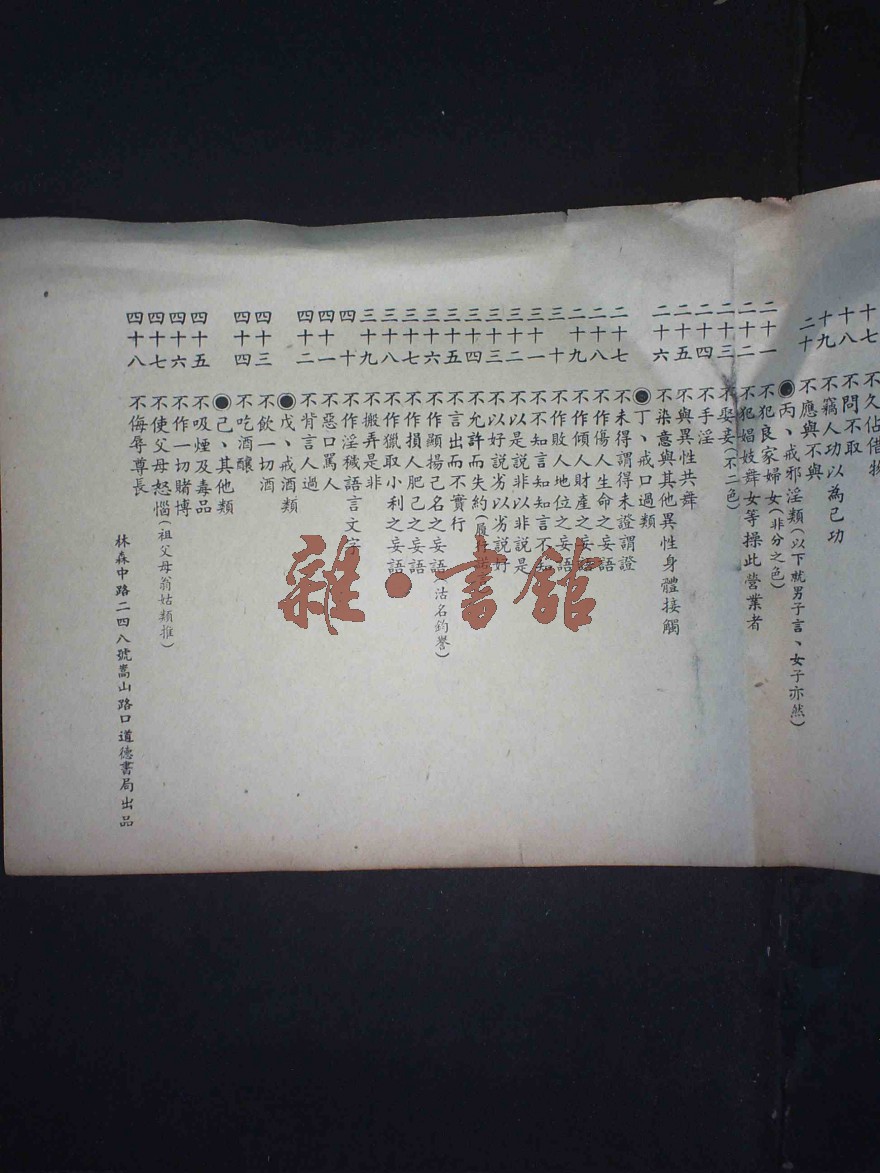 十七 不久佔借物
十八 不問不取
十九 不竊人功以為己功
二十 不應與不與
●丙、戒邪淫類(以下就男子言、女子亦然)
二十一 不犯良家婦女(非分之色)
二十二 不犯娼妓舞女等操此營業者
二十三 不娶妾(不二色)
二十四 不手淫
二十五 不與異性共舞
二十六 不染意與其他異性身體接觸
●丁、戒口過類
二十七 不未得謂得未證謂證
二十八 不作傷人生命之妄語
二十九 不作傾人財產之妄語
三十 不作敗人地位之妄語
三十一 不不知言知知言不知
三十二 不以是說非以非說是
三十三 不以好說劣以劣說好
三十四 不允許而失約(履行諾
三十五 不言出而不實行
三十六 不作顯揚己名之妄語(沽名鈞譽)
三十七 不作損人肥己之妄語
三十八 不作獵取小利之妄語
三十九 不搬弄是非
四十 不作淫穢語言文字
四十一 不惡口罵人
四十二 不背言人過
●戊、戒酒類
四十三 不飲一切酒
四十四 不吃酒釀
●己、其他類
四十五 不吸煙及毒品
四十六 不作一切賭博
四十七 不使父母怒惱(祖父母翁姑類推)
四十八 不侮辱尊長
林森中路二四八號嵩山路口道德書局出品
雜·書館